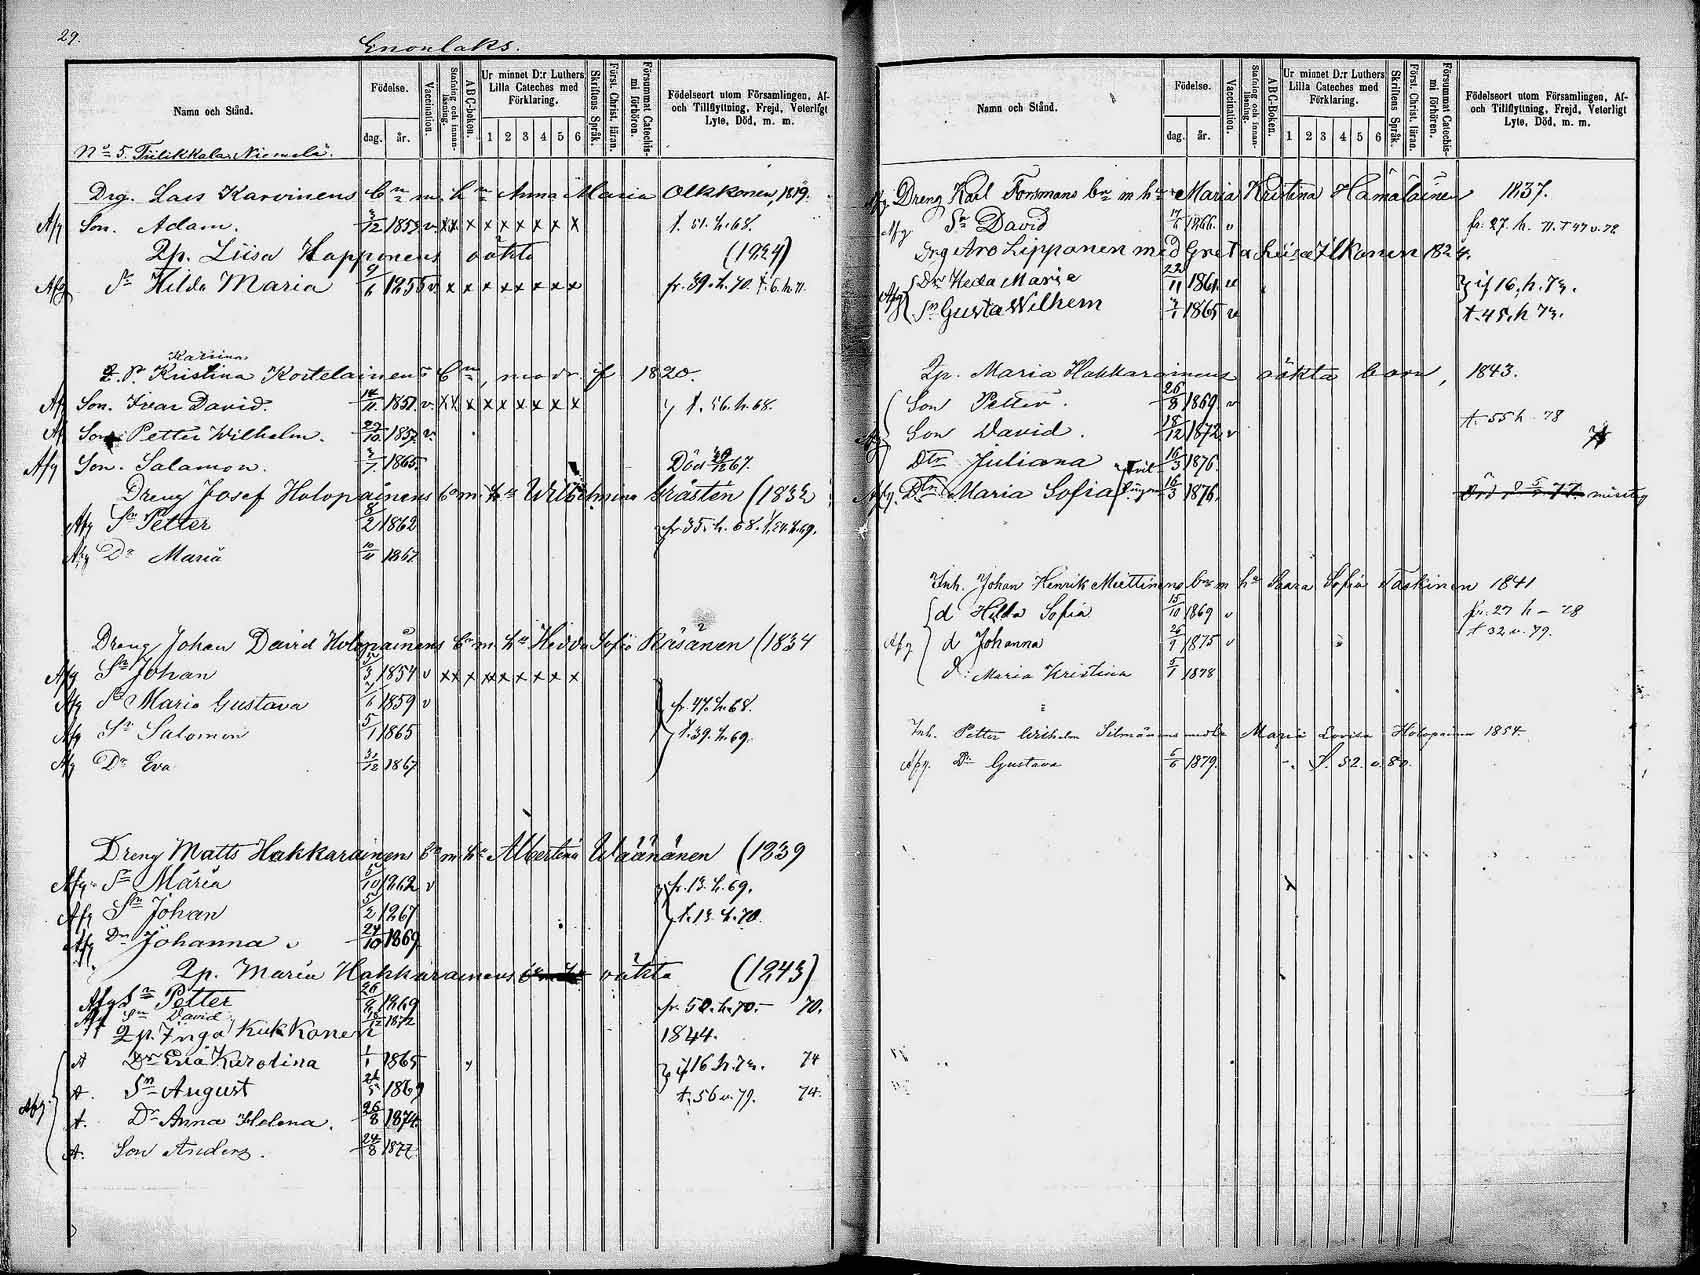 29.
Enonlaks.
Namn och Stånd.
Födelse.
dag. år.
Vaccination.
Stafning och innanläsning.
A B C-boken.
Ur minnet D:r Luthers Lilla Cateches med Förklaring.
1 2 3 4 5 6
Skriftens Språk.
Först. Christ. läran.
Försummat Catechismi förhören.
Födelseort utom Församlingen, Af- och Tillflyttning, Frejd, Veterligt Lyte, Död, m. m.
No 5. Tiilikkala Niemelä.
Drg. Lars Karvinens bn m. hu Anna Maria Olkkonen, 1819.
Afg Son. Adam. 3/12 1853 v x x x x x x x x x t. 51. h. 68.
Qp. Liisa Happonens oäkta (1824)
Afg Dr Hilda Maria 9/6 1855 v x x x x x x x x fr. 39. h. 70. t. 6. h. 71.
Karina
Q. P. Kristina Kortelainens bn, modr. f 1820.
Af Son. Ivar David. 14/11 1851. v. x x x x x x x x x t. 56. h. 68.
Af Son Petter Wilhelm. 27/10 1857. v.
Afg Son. Salamon. 3/7 1865. Död 29/12 67.
Dreng Josef Holopainens bn m hu Wilhelmina Kråsten (1832
Afg Sn Petter 8/2 1862 fr 35. h. 68. t. 51. h. 69.
Afg Dr Maria 10/11 1867
Dreng Johan David Holopainens bn m. hu Hedda Sofia Räsänen (1834
Afg Sn Johan 5/3 1854 v x x x x x x x x x
Afg Dr Maria Gustava 7/6 1859 v fr. 47. h. 68.
Afg Sn Salomon 5/1 1865 t. 39. h. 69.
Afg Dr Eva 31/12 1867
Dreng Matts Hakkarainens bn m. hu Albertina Wäänänen (1839
Afg Dr Maria 5/10 1862 v fr. 13. h. 69.
Afg Sn Johan 5/2 1867 t. 13. h. 70.
Afg Dr Johanna 24/10 1869
Qp. Maria Hakkarainens oäkta (1843)
Afg Sn Petter 26/8 1869 fr. 50. h. 70. 70.
Af Sn David 18/12 1872
Qp. Inga Kukkonen 1844.
A Dr Eva Karolina 1/1 1865 if 16 h. 73. 74
A. Sn August 26/5 1869 t. 56 v. 79. 74.
Afg. A. Dr Anna Helena. 25/8 1874
A. Son Anders. 24/8 1877
Namn och Stånd.
Födelse.
dag. år.
Vaccination.
Stafning och innanläsning.
A B C-boken.
Ur minnet D:r Luthers Lilla Cateches med Förklaring.
1 2 3 4 5 6
Skriftens Språk.
Först. Christ. läran.
Försummat Catechismi förhören.
Födelseort utom Församlingen, Af- och Tillflyttning, Frejd, Veterligt Lyte, Död, m. m.
Dreng Karl Forsmans bn m hu Maria Kristina Hämäläinen 1837.
Afg Sn David 17/6 1866. v fr. 27. h. 71. t 47 v. 72
Drg Aro Lipponen med Greta Luisa Ilkonen 1824.
Afg Dr Heda Maria 22/11 1861 v if 16. h. 73.
Sn Gusta Wilhem 3/1 1865 v t. 45. h 73.
Qp. Maria Hakkarainens oäkta barn, 1843.
Son Petter. 26/8 1869 v
Afg Son David. 18/12 1872 v t. 55 h. 78
Dtr Juliana 16/3 1876.
Afg. Dtr Maria Sofia 16/3 1876.
Inh. Johan Henrik Miettinens bn m hu Saara Sofia Taskinen 1841
d Hilda Sofia 15/10 1869 v fr. 27 h - 78
Afg d Johanna 26/9 1875 v t 32 v. 79.
d: Maria Kristina 5/1 1878
Inh. Petter Wilhelm Silmänens Maria Lovisa Holopainen 1854.
Afg. Dr Gustava 5/6 1879. t. 52. v. 80.